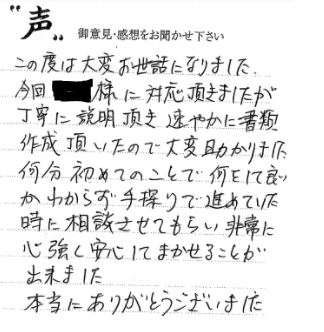 "声" 御意見・感想をお聞かせ下さい
この度は大変お世話になりました.
今回 様に対応頂きましたが
丁寧に説明頂き速やかに書類
作成頂いたので大変助かりました
何分初めてのことで何をして良い
かわからず手探りで進めていた
時に相談させてもらい非常に
心強く安心してまかせることが
出来ました
本当にありがとうございました